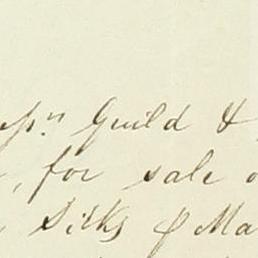 Guild &
, for sale
Silks & Ma